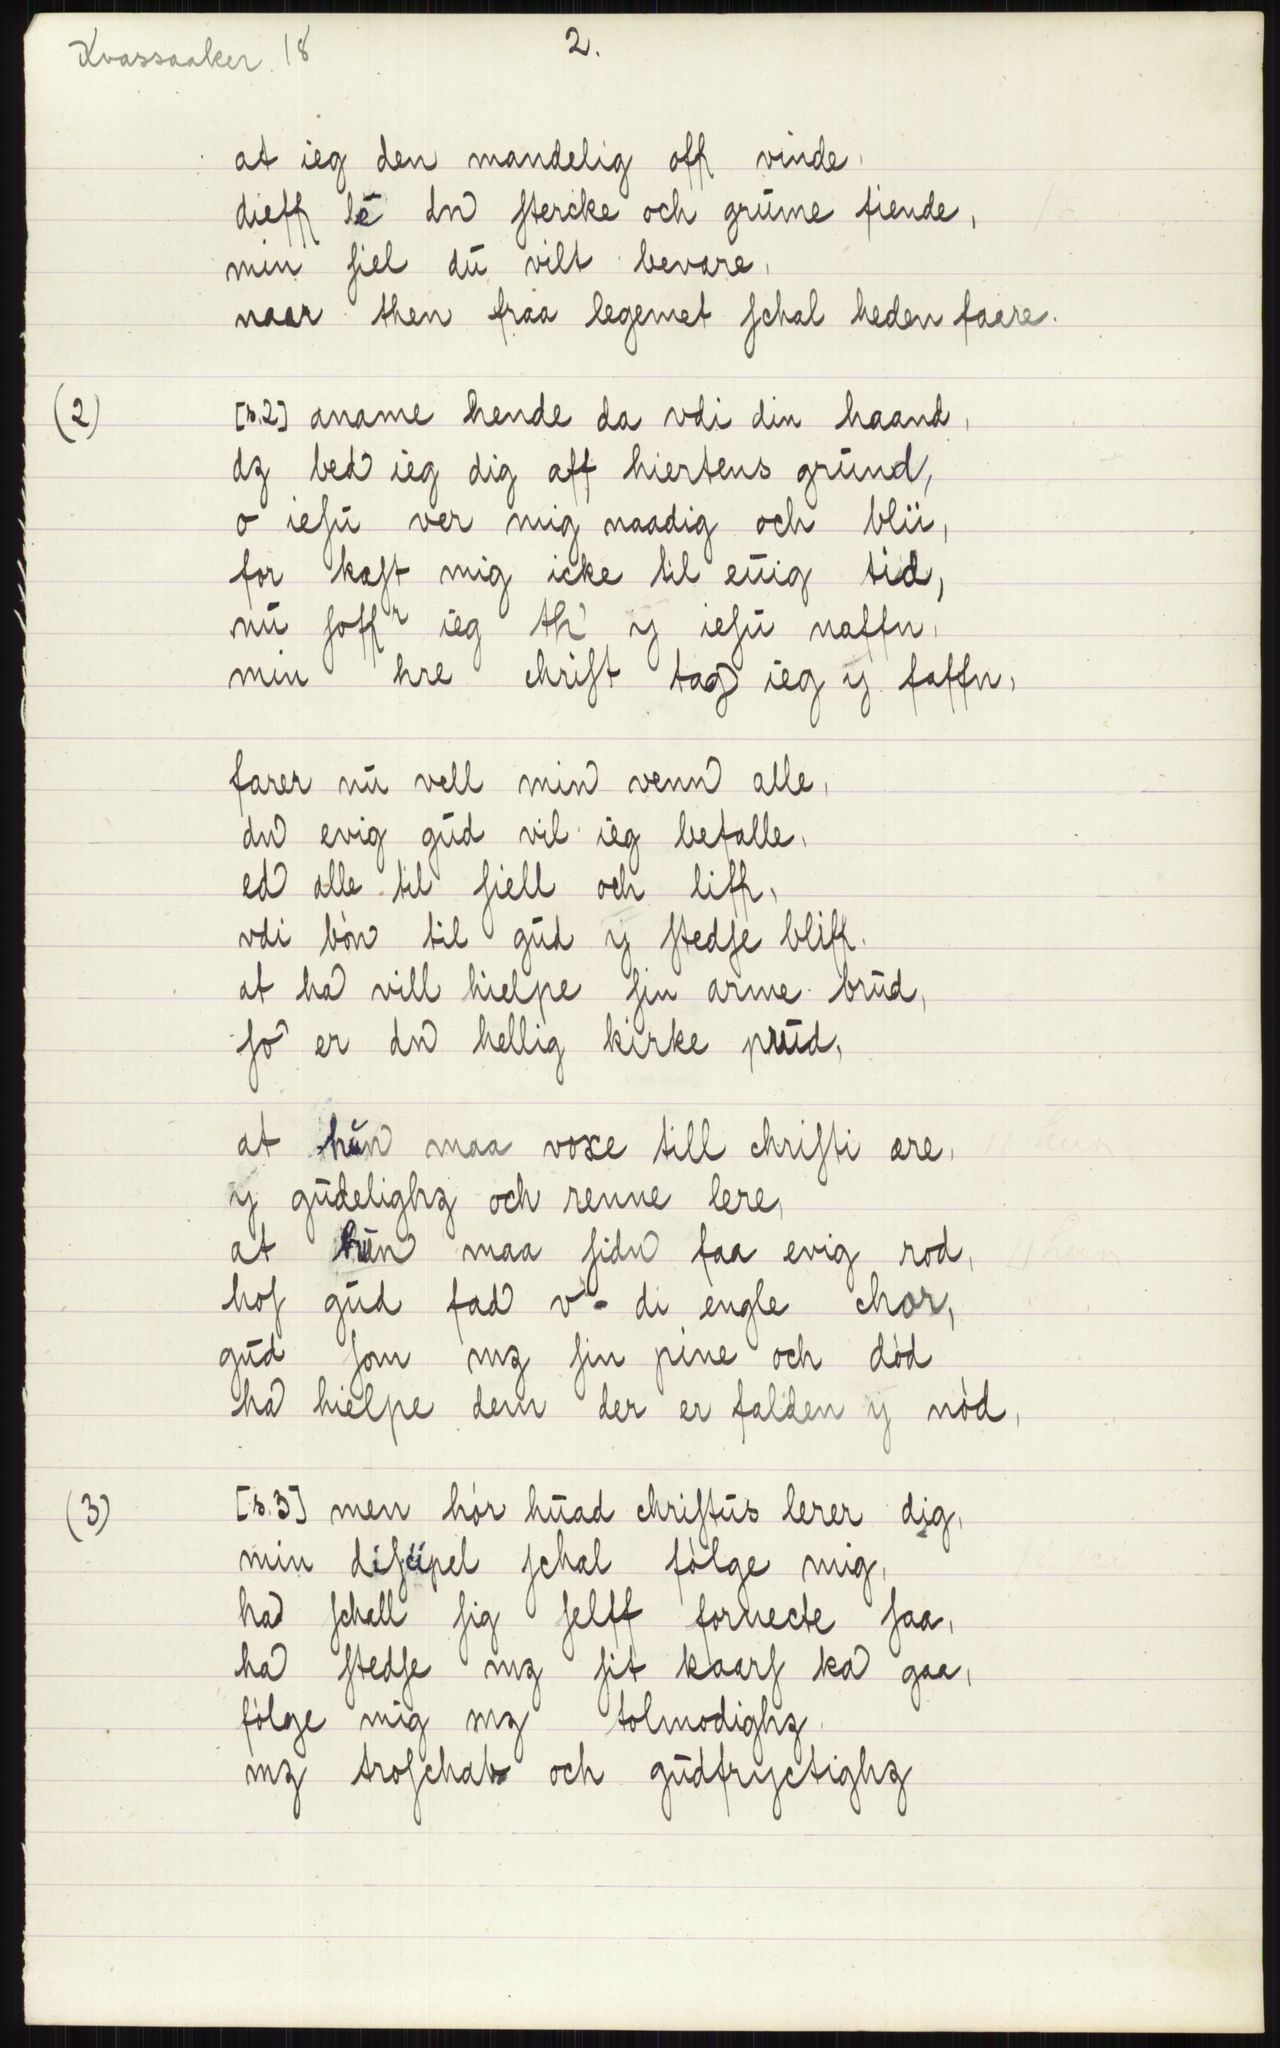 Kvassaaker 18
2.
at ieg den mandelig off vinde,
dieffl le dn stercke och grūme fiende,
min siel dū vilt bevare,
naar then fraa legemet schal heden faare.
(2) [s.2] aname hende da vdi din haand,
dz bed ieg dig aff hiertens grūnd,
o iesū ver mig naadig och blii,
for kast mig icke til eūig tid,
nū soffr ieg th y iesū naffn,
min hre christ tag ieg y faffn,
farer nū vell min venn alle,
dn evig gūd vil ieg befalle,
ed alle til siell och liff,
vdi bón til gūd y stedse bliff.
at ha vill hielpe sin arme brūd,
so er dn hellig kirke prūd,
at hūn maa voxe till christi ære,
y gūdelighz och renne lere,
at hūn maa sidn faa evig rod,
hos gūd fad v-di engle chor,
gūd som mz sin pine och dód
ha hielpe dem der er falden y nód,
(3) [s.3] men hór hūad christūs lerer dig,
min discipel schal fólge mig,
ha schall sig selff fornecte saa,
ha stedse mz sit kaars ka gaa,
fólge mig mz tolmodighz
mz troschab och gūdfryctighz